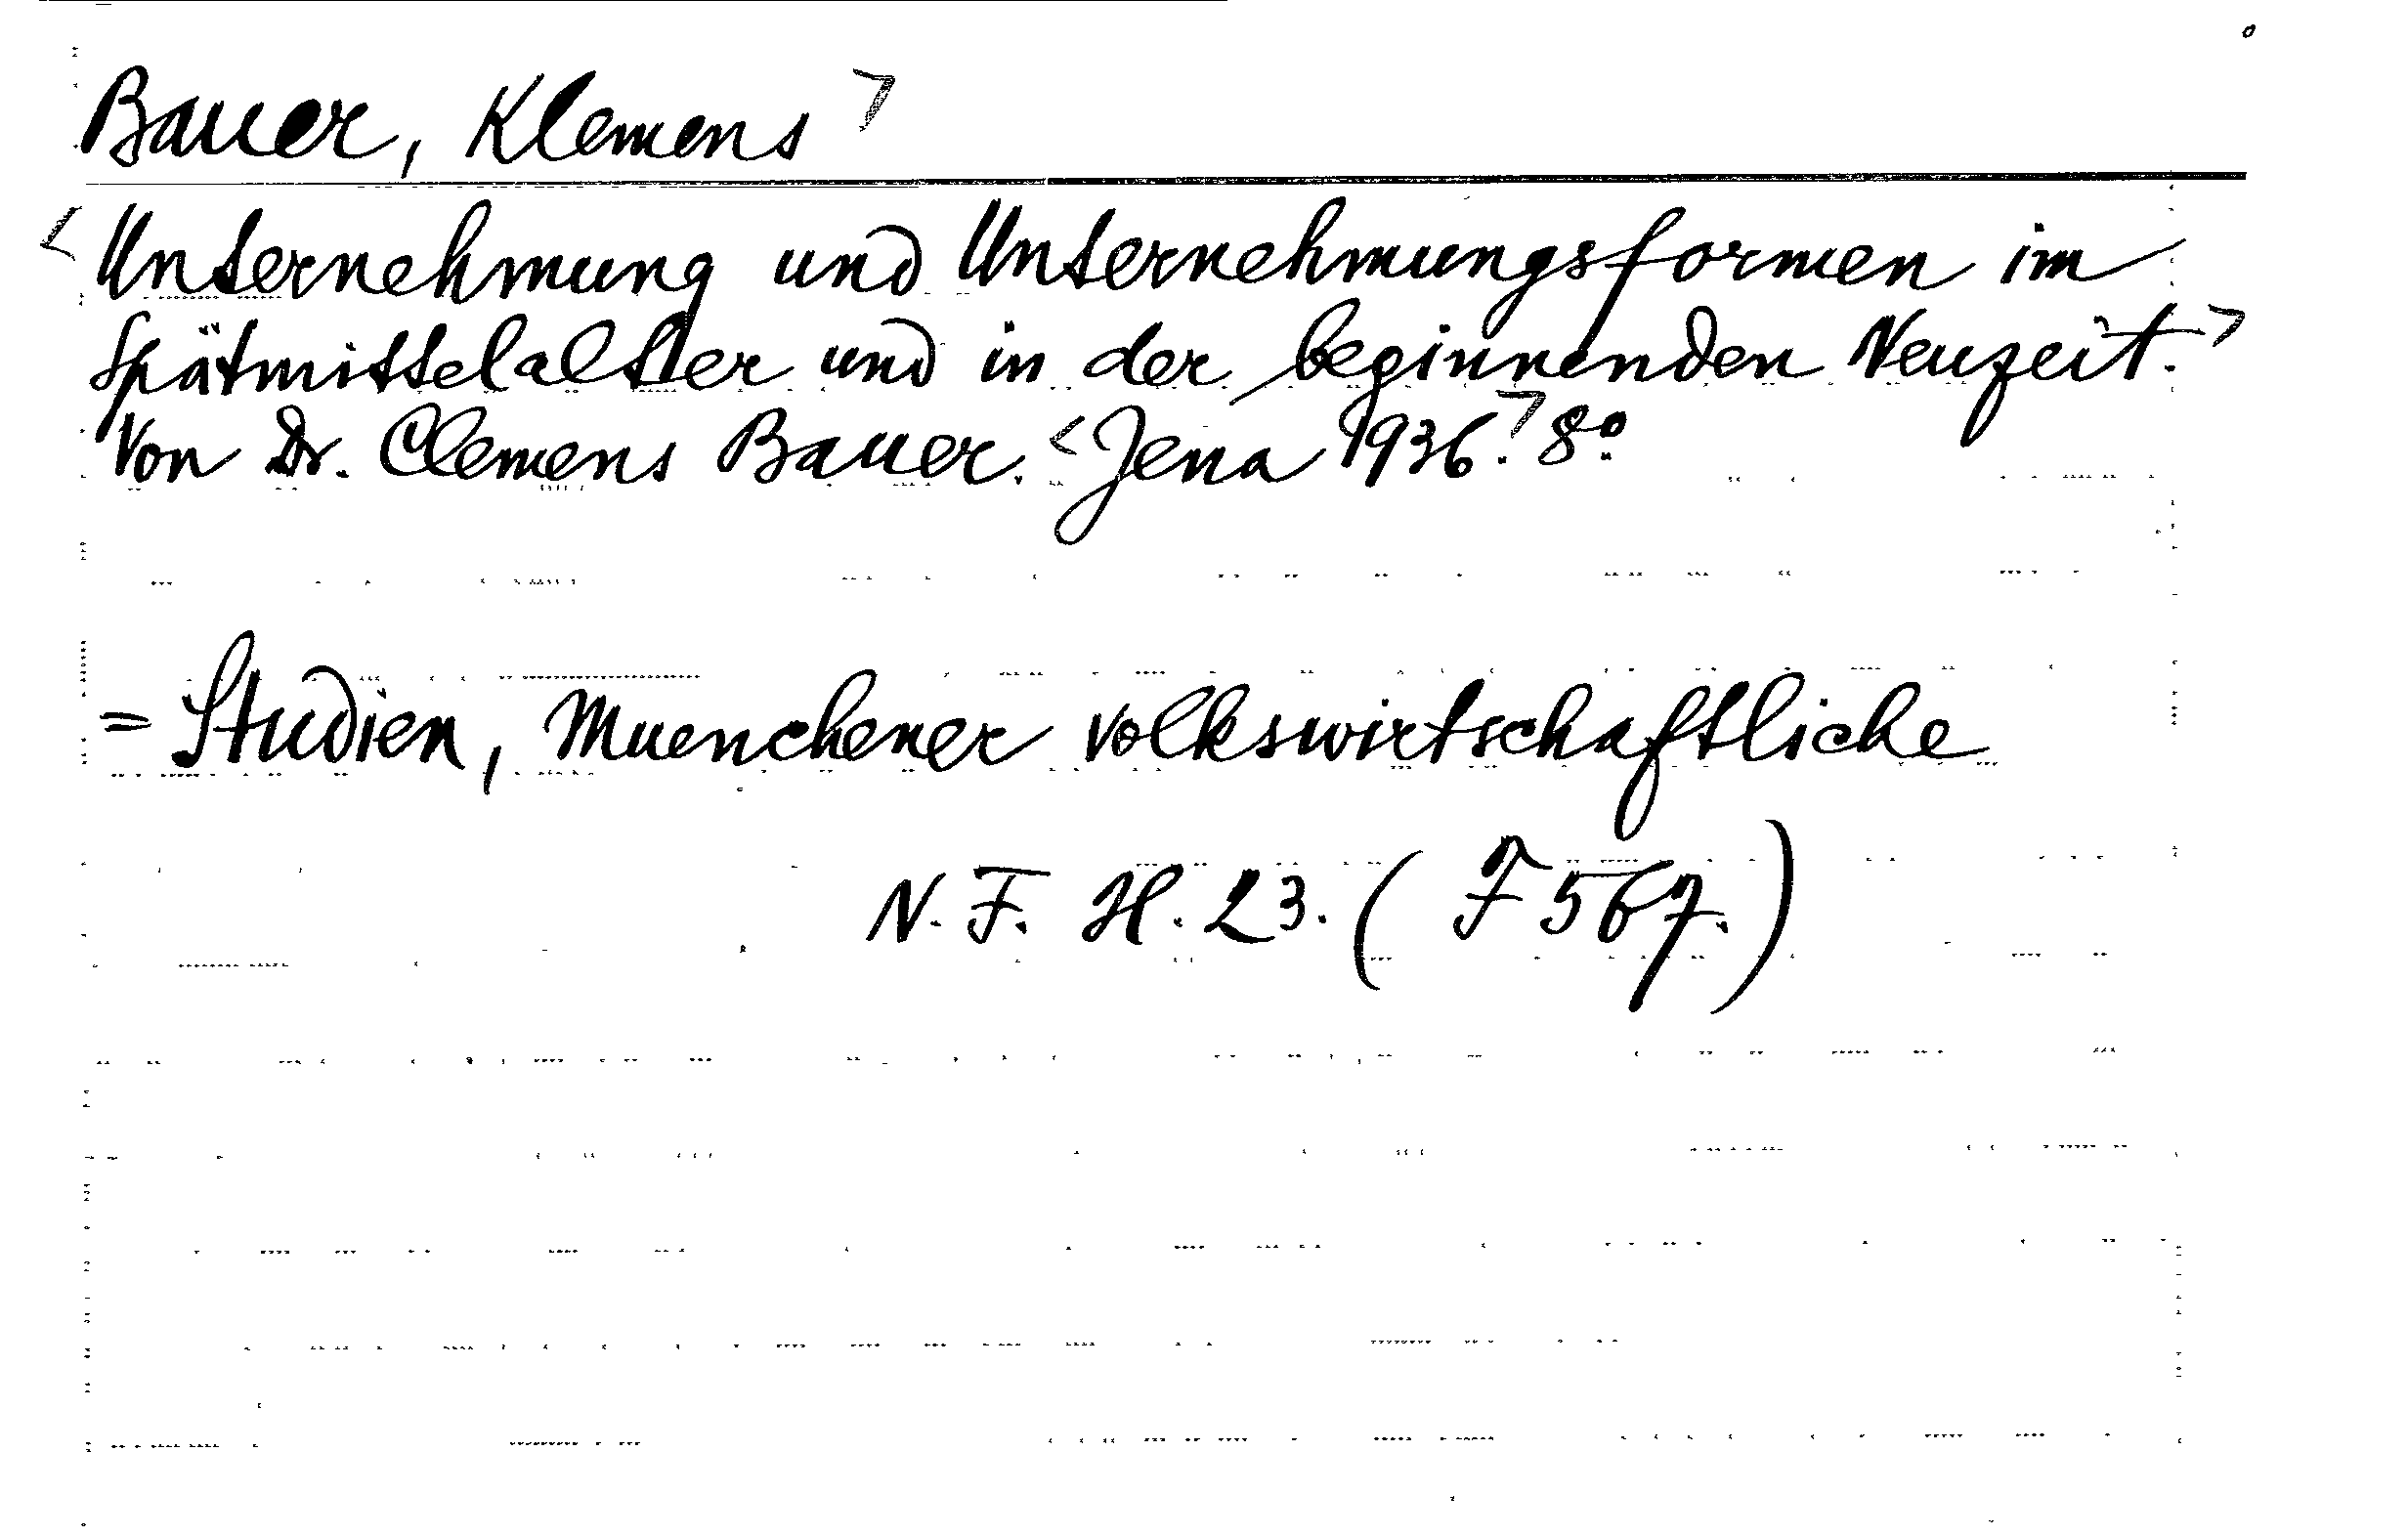 Bauer, Klemens >
< Unternehmung und Unternehmungsformen im
Spätmittelalter und in der beginnenden Neuzeit. >
Von Dr. Clemens Bauer. < Jena 1936. > 8°
= Studien, Muenchener volkswirtschaftliche
N. F. H. 23. ( F 567. )